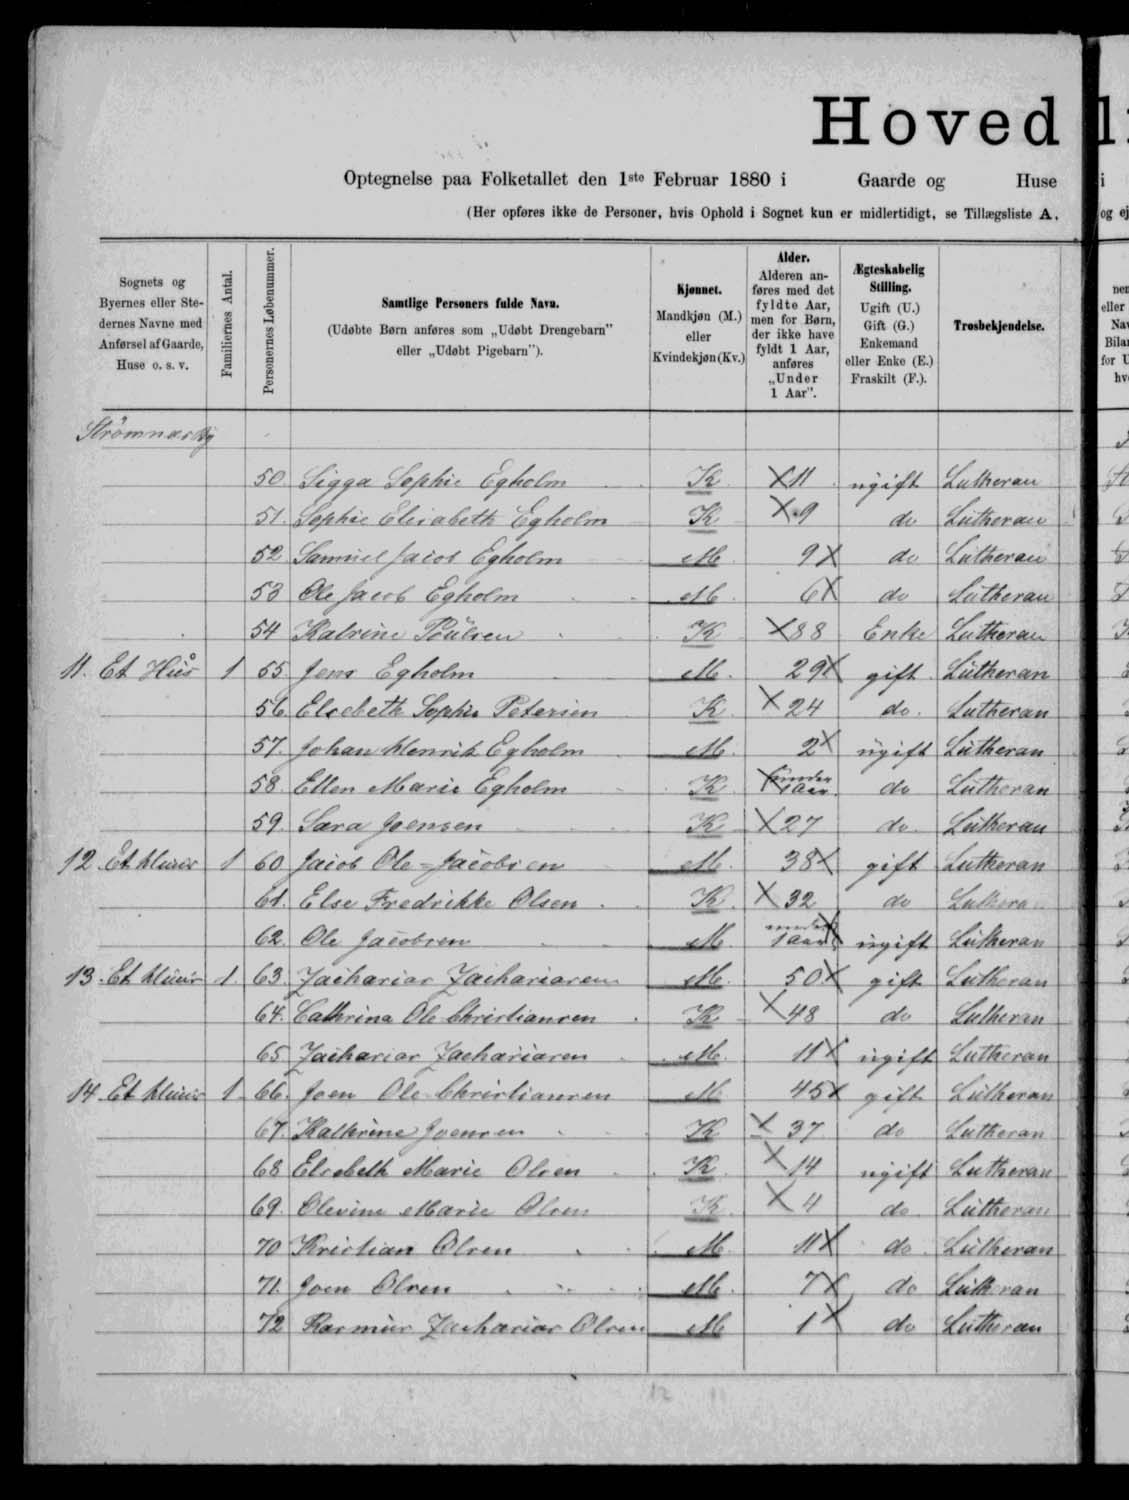 Hoved
Optegnelse paa Folketallet den 1ste Februar 1880 i Gaarde og Huse
(Her opføres ikke de Personer, hvis Ophold i Sognet kun er midlertidigt, se Tillægsliste A.
Sognets og Byernes eller Stedernes Navne med Anførsel af Gaarde, Huse o. s. v.
Familiernes Antal.
Personernes Løbenummer.
Samtlige Personers fulde Navn.
(Udøbte Børn anføres som „Udøbt Drengebarn" eller „Udøbt Pigebarn").
Kjønnet.
Mandkjøn (M.) eller Kvindekjøn (Kv.)
Alder.
Alderen anføres med det fyldte Aar, men for Børn, der ikke have fyldt 1 Aar, anføres „Under 1 Aar".
Ægteskabelig Stilling.
Ugift (U.) Gift (G.) Enkemand eller Enke (E.) Fraskilt (F.).
Trosbekjendelse.
Strømnæs By
50 Sigga Sophie Egholm K X 11 ugift Lutheran
51. Sophie Elisabeth Egholm K X 9 do Lutheran
52 Samuel Jacob Egholm M. 9 X do Lutheran
53 Ole Jacob Egholm M. 6 X do Lutheran
54 Katrine Poulsen K X 88 Enke Lutheran
11. Et Hus 1 55. Jens Egholm M. 29 X gift Lutheran
56. Elsebeth Sophie Petersen K. X 24 do. Lutheran
57. Johan Henrik Egholm M. 2 X ugift Lutheran
58. Ellen Marie Egholm K. X under 1 Aar. do Lutheran
59. Sara Joensen K X 27 do. Lutheran
12 Et Huus 1 60 Jacob Ole Jacobsen M. 38 X gift Lutheran
61. Else Fredrikke Olsen K. X 32 do Lutheran
62. Ole Jacobsen M. under 1 Aar X ugift Lutheran
13. Et Huus 1 63. Zacharias Zachariasen M. 50 X gift Lutheran
64. Cathrina Ole Christiansen K X 48 do Lutheran
65 Zacharias Zachariasen M. 11 X ugift Lutheran
14. Et Huus 1 66. Joen Ole Christiansen M 45 X gift Lutheran
67. Kathrine Joensen K X 37 do Lutheran
68 Elsebeth Marie Olsen K X 14 ugift Lutheran
69. Olevine Marie Olsen K X 4 do Lutheran
70 Kristian Olsen M. 11 X do. Lutheran
71. Joen Olsen M. 7 X do Lutheran
72 Rasmus Zacharias Olsen M 1 X do Lutheran